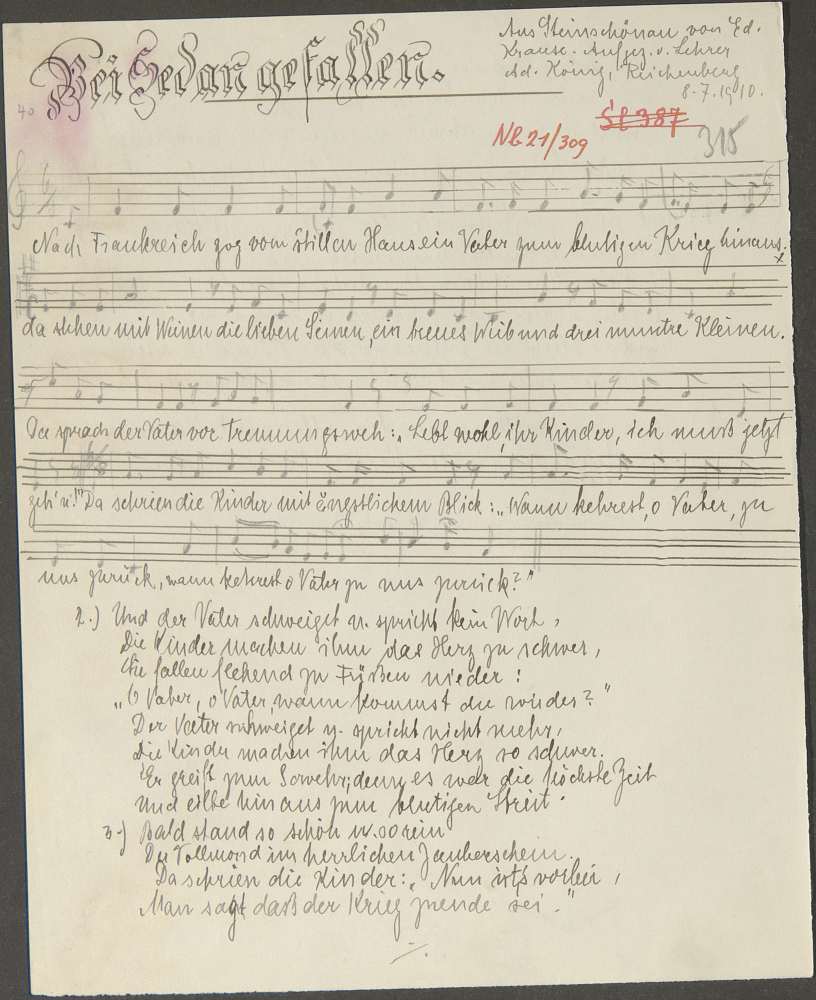 Bei Sedan gefallen.
Aus Steinschönau von Ed.
Krause. Aufgez. v. Lehrer
Ad. König, Reichenberg
8.7.1910.
40
Sl 387
NB 21/309
315
Nach Frankreich zog vom stillen Haus ein Vater zum blutigen Krieg hinaus.
da stehen mit Weinen die lieben Seinen, ein treues Weib und drei muntre Kleinen.
Da sprach der Vater vor Trennungsweh: „Lebt wohl, ihr Kinder, ich muß jetzt
geh'n!" Da schrien die Kinder mit ängstlichem Blick: „Wann kehrest, o Vater, zu
uns zurück, wann kehrest o Vater zu uns zurück?"
2.) Und der Vater schweiget u. spricht kein Wort,
Die Kinder machen ihm das Herz zu schwer,
Sie fallen flehend zu Füßen nieder:
„O Vater, o Vater, wann kommst du wieder?"
Der Vater schweiget u. spricht nicht mehr,
Die Kinder machen ihm das Herz so schwer.
Er greift zum denn es war die höchste Zeit
Und eilte hinaus zum blutigen Streit.
3.) Bald stand so schön u. so rein
Der Vollmond im herrlichen Zauberschein.
Da schrien die Kinder: „Nun ist's vorbei,
Man sagt daß der Krieg zuende sei."